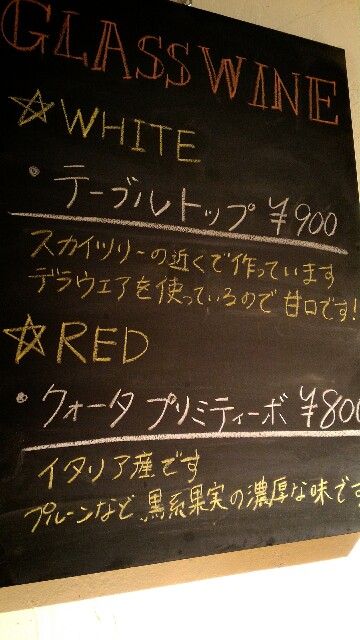 GLASS WINE
☆WHITE
・テーブルトップ ¥900
スカイツリーの近くで作っています
デラウェアを使っているので甘口です!
☆RED
・クォータ プリミティーボ ¥800
イタリア産です
プルーンなど、黒系果実の濃厚な味です